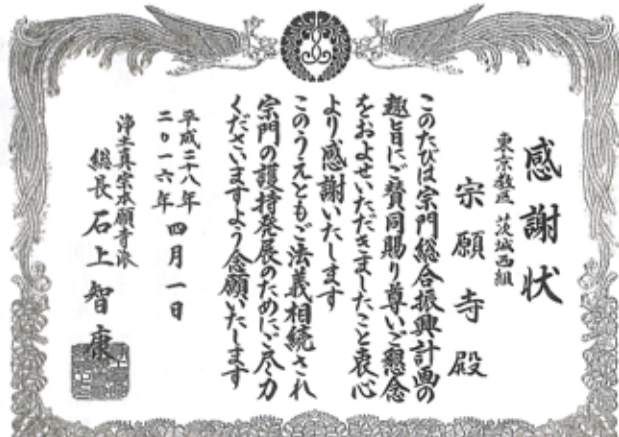 感謝状
東京教区 茨城西組
宗願寺殿
このたびは宗門総合振興計画の
趣旨にご賛同賜り尊いご懇念
をおよせいただきましたこと衷心
より感謝いたします
このうえともご法義相続され
宗門の護持発展のためにご尽力
くださいますよう念願いたします
平成二八年
二〇一六年 四月一日
浄土真宗本願寺派
総長 石上智康